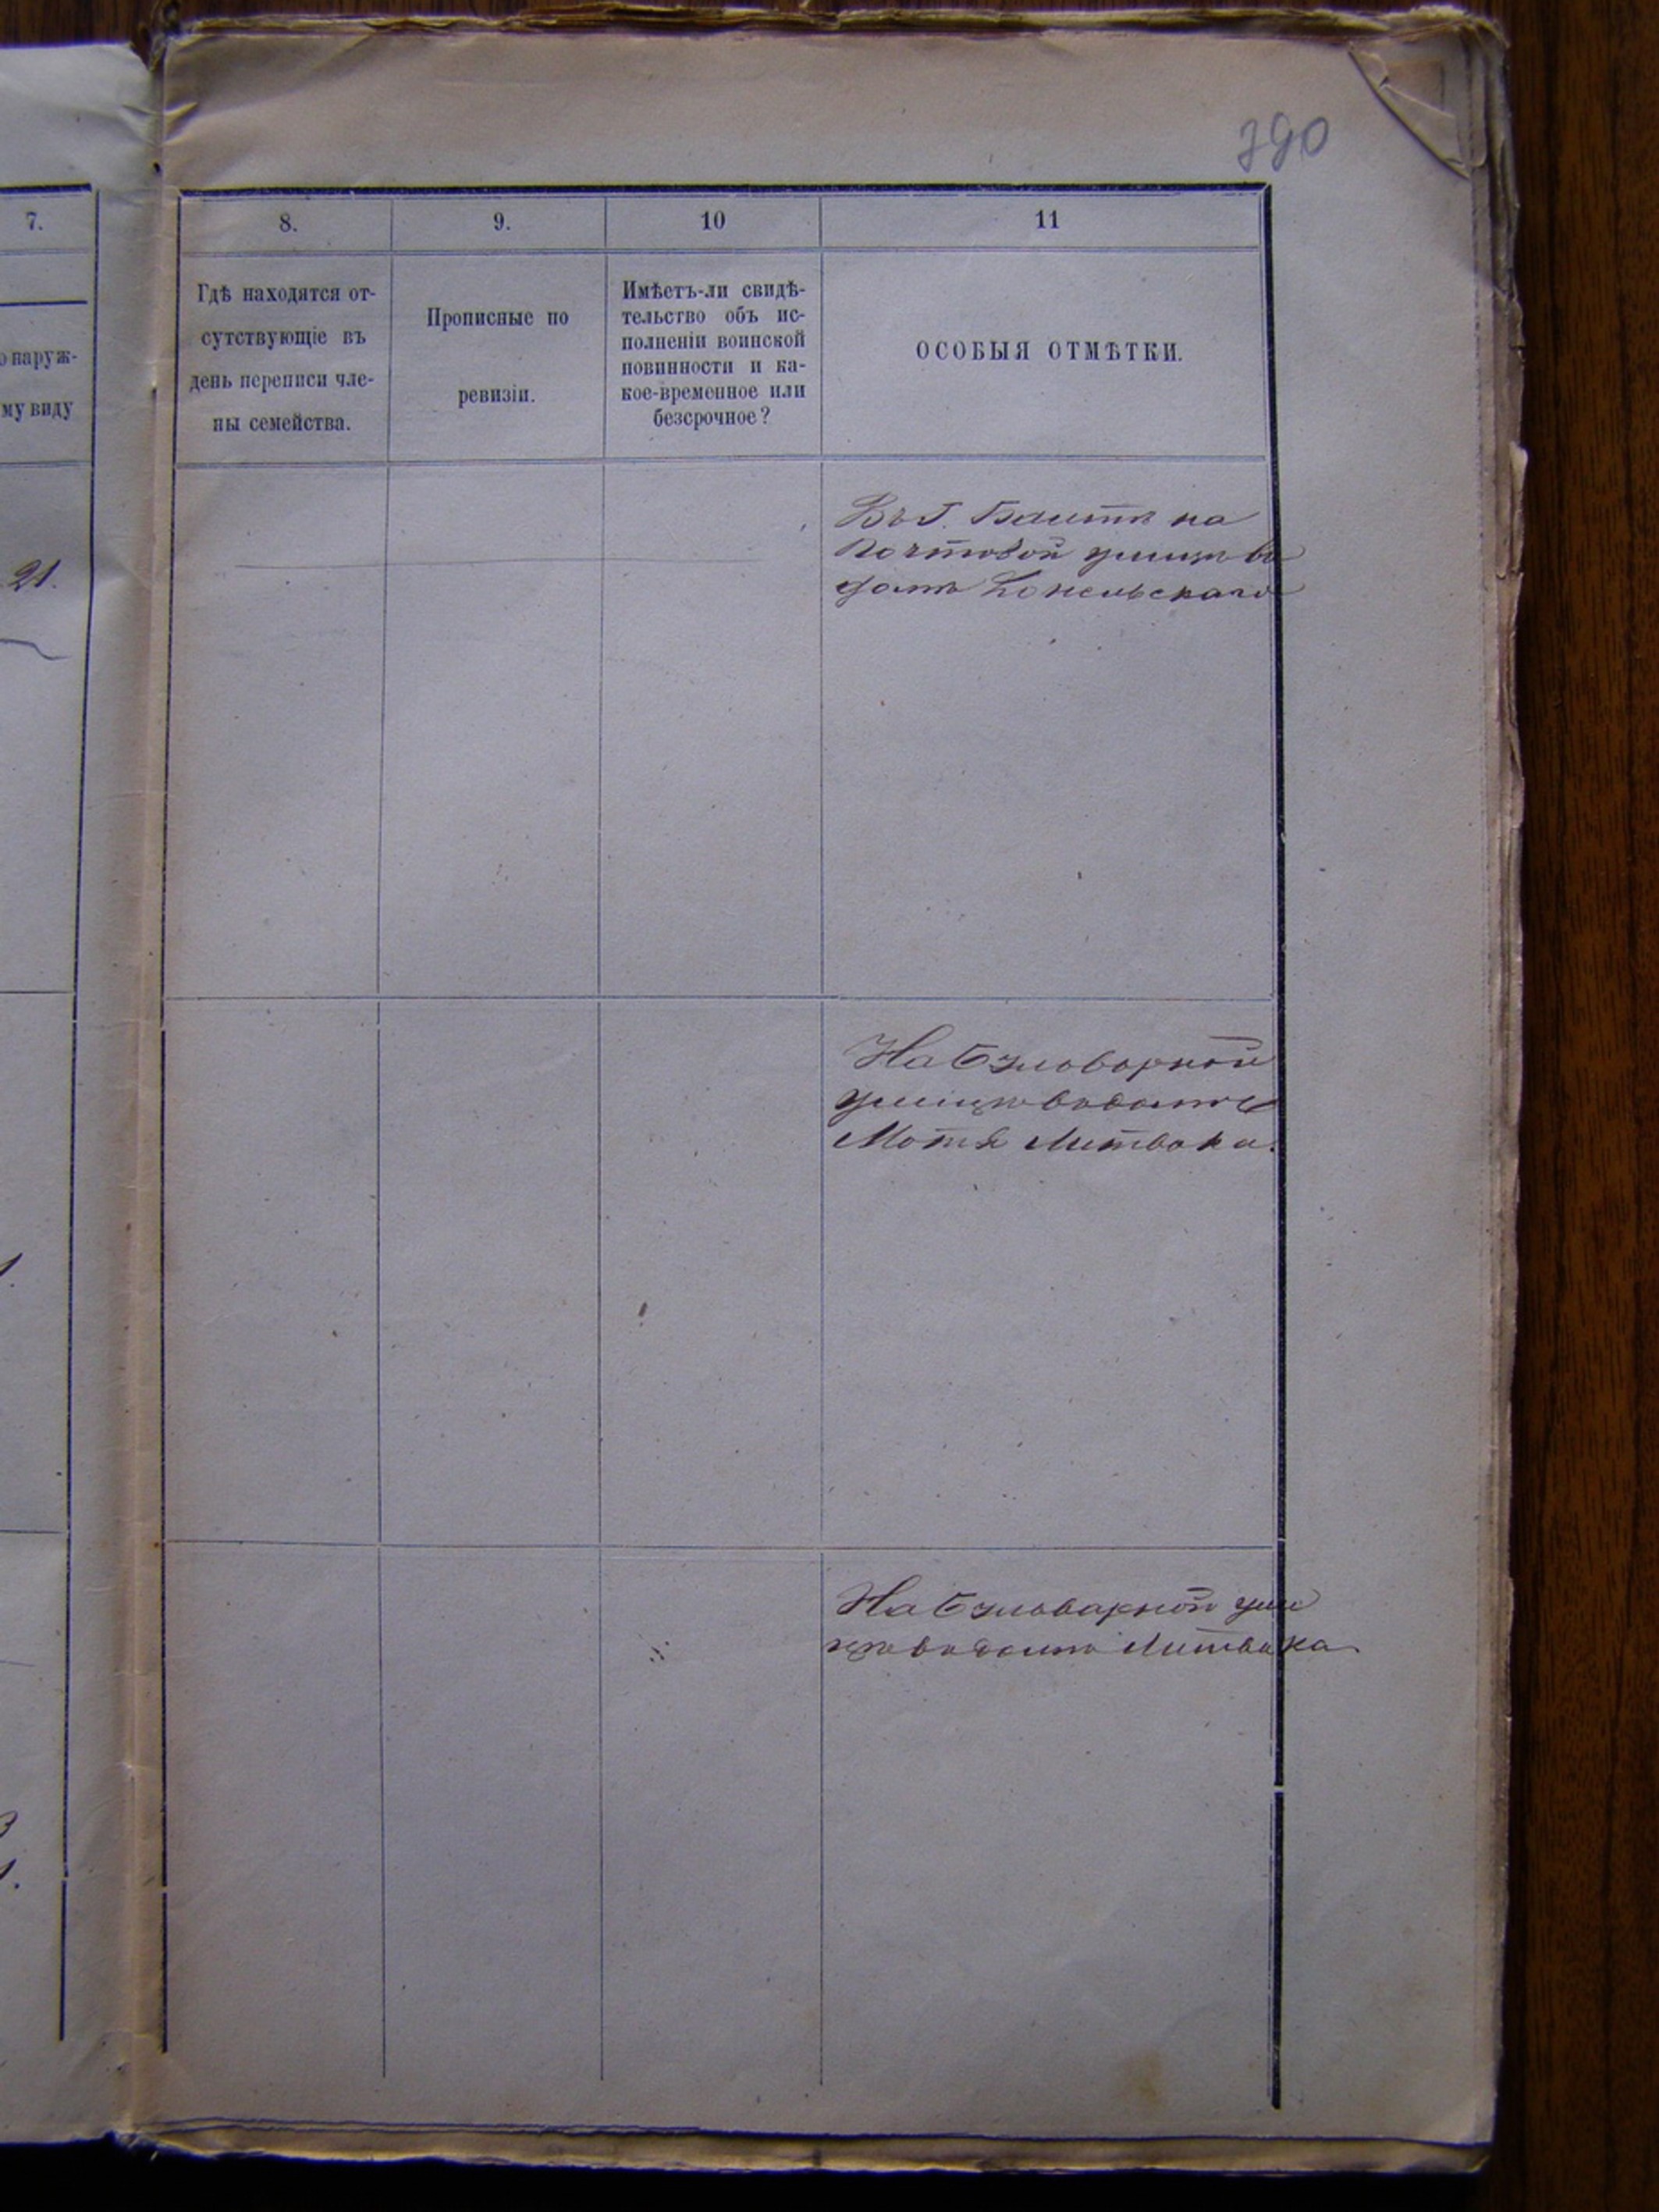 390
7.
о наруж-
му виду
21.
8.
9.
10
11
Гдѣ находятся от-
сутствующіе въ
день переписи чле-
ны семейства.
Прописные по
ревизіи.
Имѣетъ-ли свидѣ-
тельство объ ис-
полненіи воинской
повинности и ка-
кое-временное или
безсрочное?
ОСОБЫЯ ОТМѢТКИ.
Въ Г. Балтѣ на
Почтовой улицѣ въ
домѣ
На
улицѣ въ домѣ
Мотя Литвака.
На ули
цѣ въ домѣ Литвака.